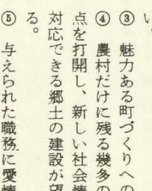 い。
③ 魅力ある町づくりへの
④ 農村だけに残る幾多の
点を打開し、新しい社会情
対応できる郷土の建設が望
る。
⑤ 与えられた職務に愛情